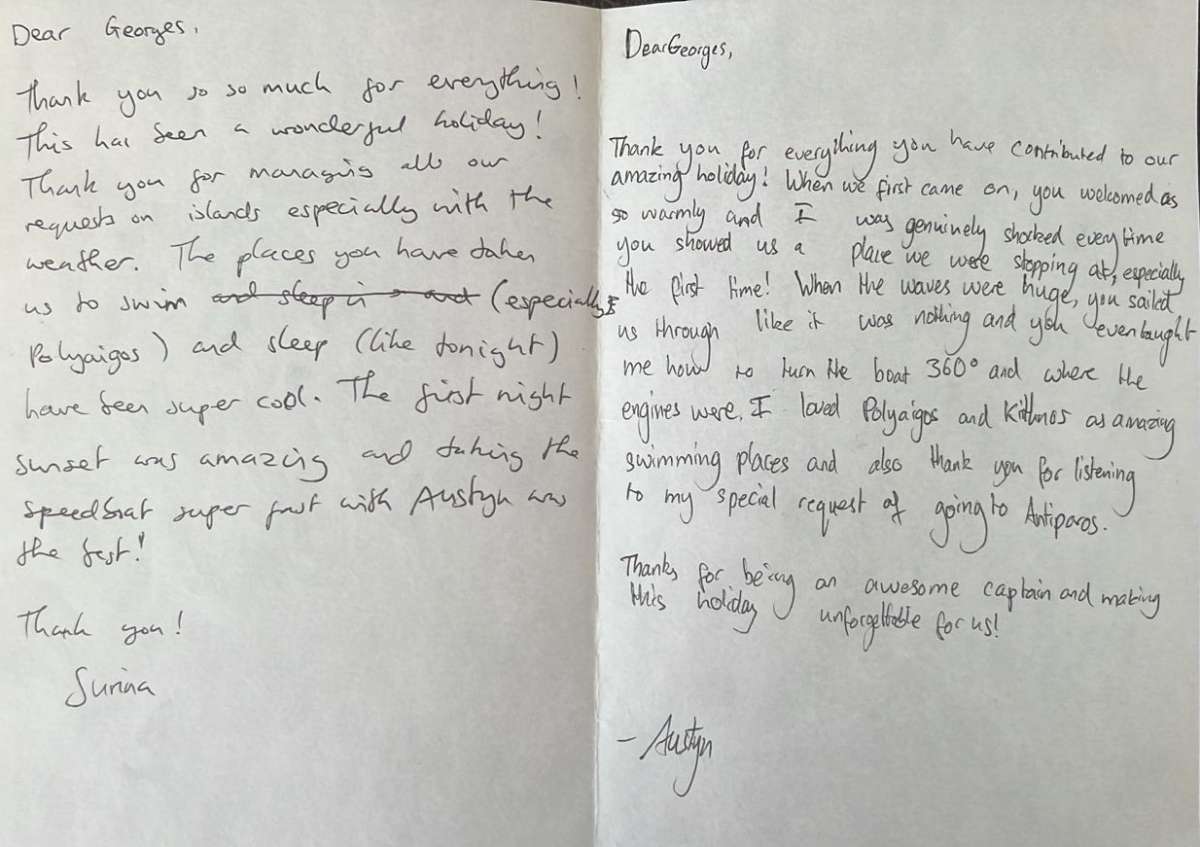 Dear Georges,
Thank you so so much for everything!
This has been a wonderful holiday!
Thank you for managing all our
requests on islands especially with the
weather. The places you have taken
us to swim and sleep in (especially
Polyaigos) and sleep (like tonight)
have been super cool. The first night
sunset was amazing and taking the
speedboat super fast with Austyn was
the best!
Thank you!
Surina
Dear Georges,
Thank you for everything you have contributed to our
amazing holiday! When we first came on, you welcomed us
so warmly and I was genuinely shocked everytime
you showed us a place we were stopping at, especially
the first time! When the waves were huge, you sailed
us through like it was nothing and you even taught
me how to turn the boat 360° and where the
engines were. I loved Polyaigos and Kithnos as amazing
swimming places and also thank you for listening
to my special request of going to Antiparos.
Thanks for being an awesome captain and making
this holiday unforgettable for us!
- Austyn